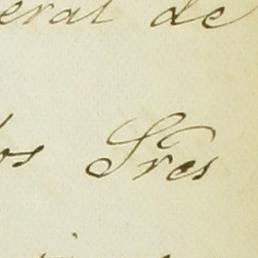 eral de
os Sres